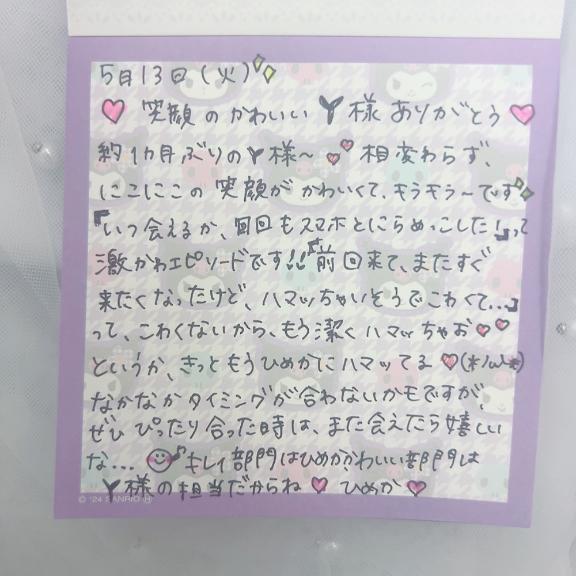 5月13日(火)
笑顔のかわいいY様ありがとう
約1カ月ぶりのY様〜 相変わらず、
にこにこの笑顔がかわいくて、キラキラ〜です
『いつ会えるか、何回もスマホとにらめっこした!』って
激かわエピソードです!!『前回来て、またすぐ
来たくなったけど、ハマッちゃいそうでこわくて...』
って、こわくないから、もう潔くハマッちゃお
というか、きっともうひめかにハマッてる (*/ω\*)
なかなかタイミングが合わないかもですが、
ぜひ ぴったり合った時は、また会えたら嬉しい
な... キレイ部門はひめか?かわいい部門は
Y様の担当だからね ひめか
© '24 SANRIO